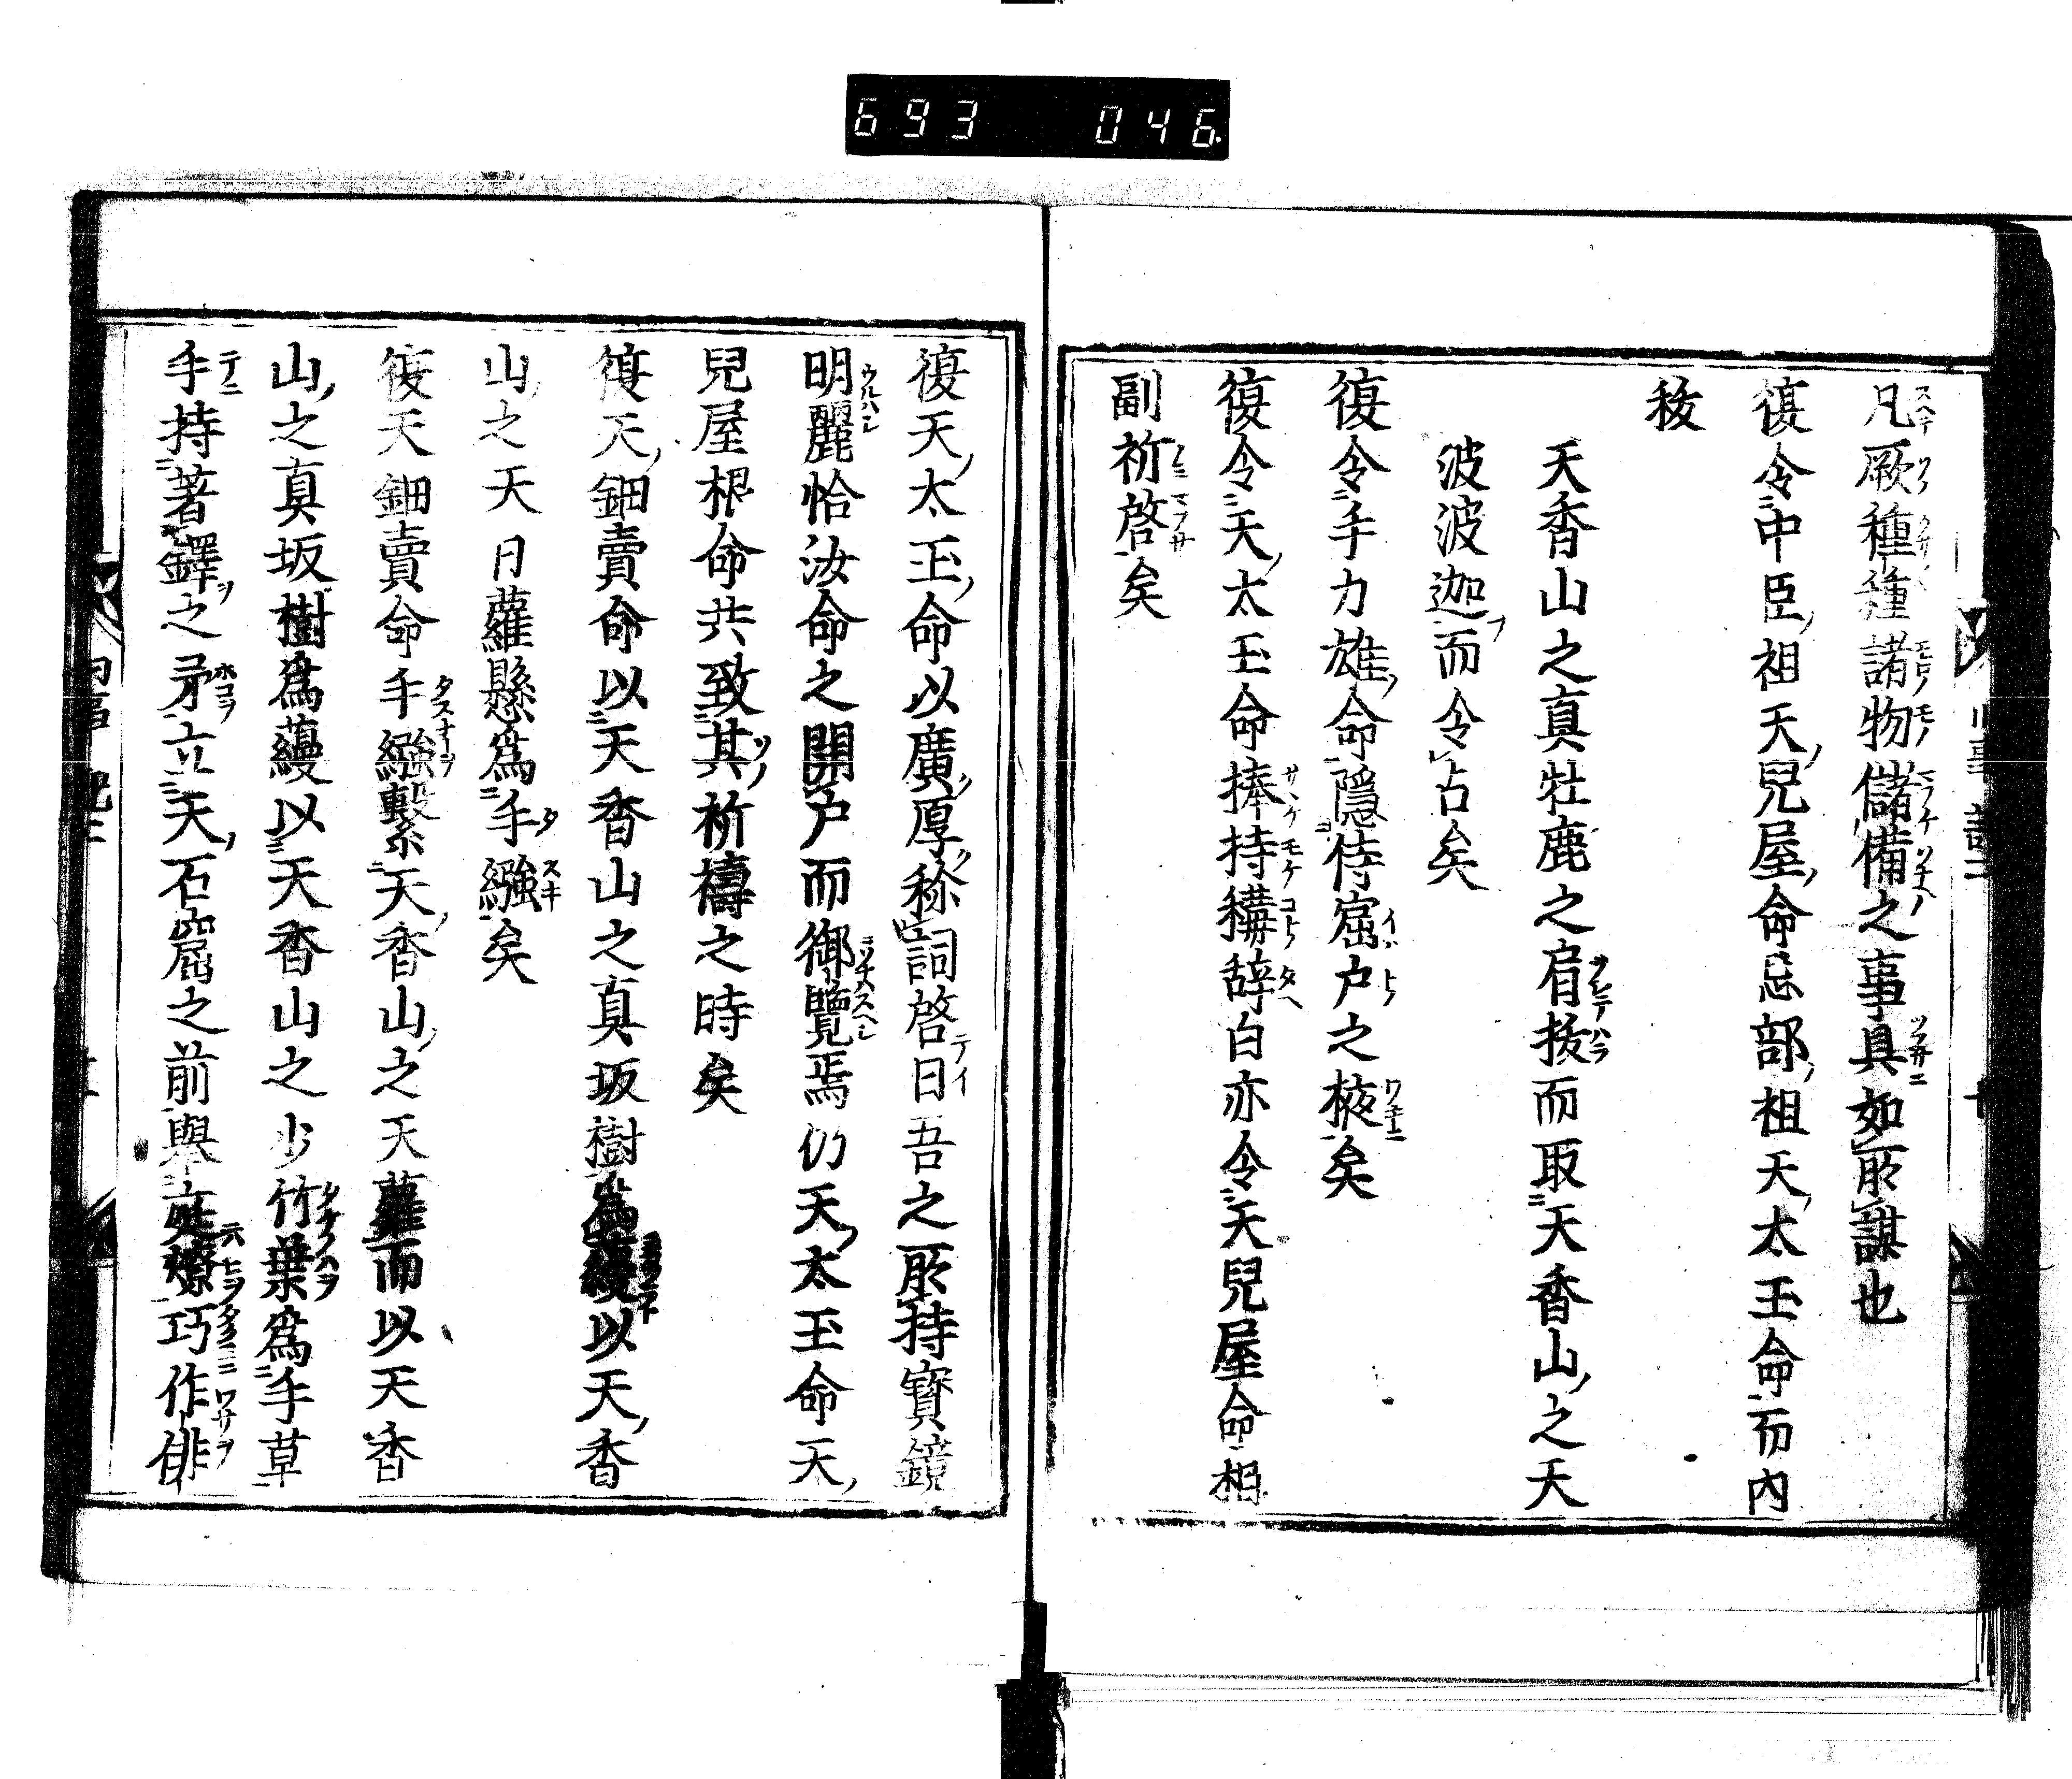 693 046
凡厥種種諸物儲備之事具如所謀也
復令中臣祖天兒屋命忌部祖天太玉命而内
抜
天香山之真牡鹿之肩抜而取天香山之天
波波迦而令占矣
復令手力雄命隠侍窟户之掖矣
復令天太玉命捧持構辞白亦令天兒屋命相
副祈啓矣
復天太玉命以廣厚称詞啓曰吾之所持寳鏡
明麗恰汝命之開户而御覽焉仍天太玉命天
兒屋根命共致其祈禱之時矣
復天鈿賣命以天香山之真坂樹為縵以天香
山之天日蘿懸爲手繦矣
復天鈿賣命手繦繫天香山之天蘿而以天香
山之真坂樹爲蘰以天香山之少竹葉爲手草
手持著鐸之矛立天石窟之前舉庭燎巧作俳